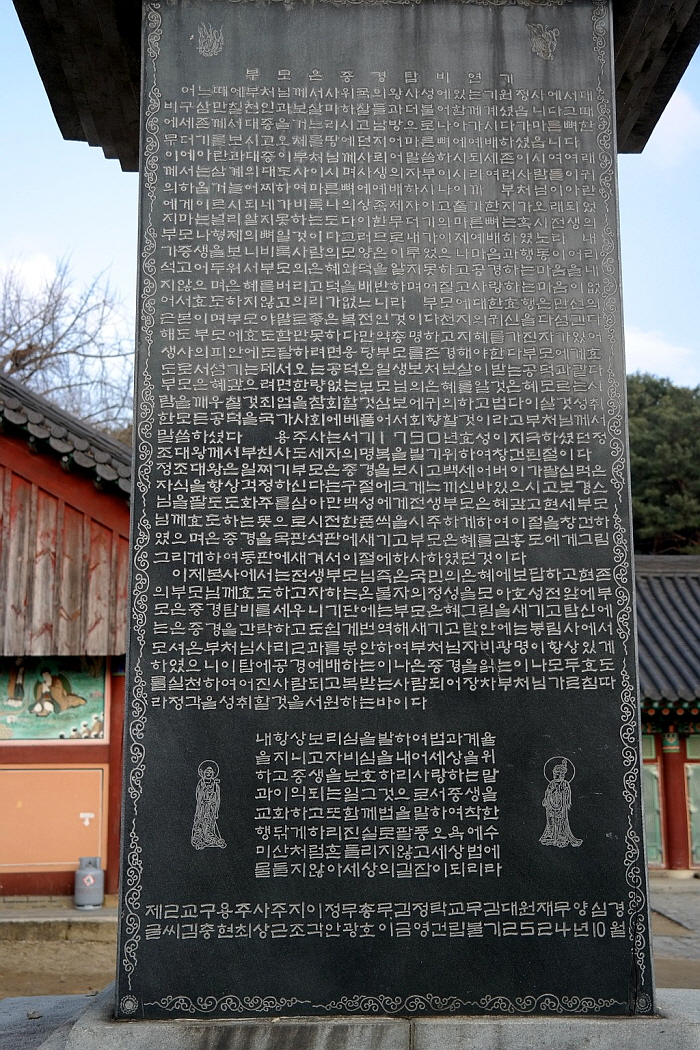 부모은중경탑비연기
어느때에부처님께서사위국의왕사성에있는기원정사에서대
비구삼만팔천인과보살마하살들과더불어함께계셨습니다그때
에세존께서대중을거느리시고남방으로나아가시다가마른뼈한
무더기를보시고오체를땅에던지어마른뼈에예배하셨습니다
이에아난과대중이부처님께사뢰어말씀하시되세존이시여여래
께서는삼계의대도사이시며사생의자부이시라여러사람들이귀
의하옵거늘어찌하여마른뼈에예배하시나이까 부처님이아난
에게이르시되네가비록나의상족제자이고출가한지가오래되었
지마는널리알지못하는도다이한무더기의마른뼈는혹시전생의
부모나형제의뼈일것이다그러므로내가이제예배하였노라 내
가중생을보니비록사람의모양은이루었으나마음과행동이어리
석고어두워서부모의은혜와덕을알지못하고공경하는마음을내
지않으며은혜를버리고덕을배반하며어질고사랑하는마음이없
어서효도하지않고의리가없느니라 부모에대한효행은만선의
근본이며부모야말로좋은복전인것이다천지의귀신을다섬긴다
해도부모에효도함만못하다만약총명하고지혜를가진자가있어
생사의피안에도달하려면응당부모를존경해야한다부모에게효
도로서섬기는데서오는공덕은일생보처보살이받는공덕과같다
부모은혜갚으려면한량없는부모님의은혜를알것은혜모르는사
람을깨우칠것죄업을참회할것삼보에귀의하고법다이살것성취
한모든공덕을국가사회에베풀어서회향할것이라고부처님께서
말씀하셨다 용주사는서기1790년효성이지극하셨던정
조대왕께서부친사도세자의명복을빌기위하여창건된절이다
정조대왕은일찌기부모은중경을보시고백세어버이가팔십먹은
자식을항상걱정하신다는구절에크게느끼신바있으시고보경스
님을팔도도화주를삼아만백성에게전생부모은혜갚고현세부모
님께효도하는뜻으로시전한푼씩을시주하게하여이절을창건하
였으며은중경을목판석판에새기고부모은혜를김홍도에게그림
그리게하여동판에새겨서이절에하사하였던것이다
이제본사에서는전생부모님즉온국민의은혜에보답하고현존
의부모님께효도하고자하는온불자의정성을모아호성전앞에부
모은중경탑비를세우니기단에는부모은혜그림을새기고탑신에
는은중경을간략하고도쉽게번역해새기고탑안에는봉림사에서
모셔온부처님사리2과를봉안하여부처님자비광명이항상있게
하였으니이탑에공경예배하는이나은중경을읽는이나모두효도
를실천하여어진사람되고복받는사람되어장차부처님가르침따
라정각을성취할것을서원하는바이다
내항상보리심을발하여법과계율
을지니고자비심을내어세상을위
하고중생을보호하리사랑하는말
과이익되는일그것으로서중생을
교화하고또함께법을말하여착한
행닦게하리진실로팔풍오욕에수
미산처럼흔들리지않고세상법에
물들지않아세상의길잡이되리라
제2교구용주사주지이정무총무김정탁교무김대원재무양심경
글씨김충현최상근조각안광호이금영건립불기2524년10월